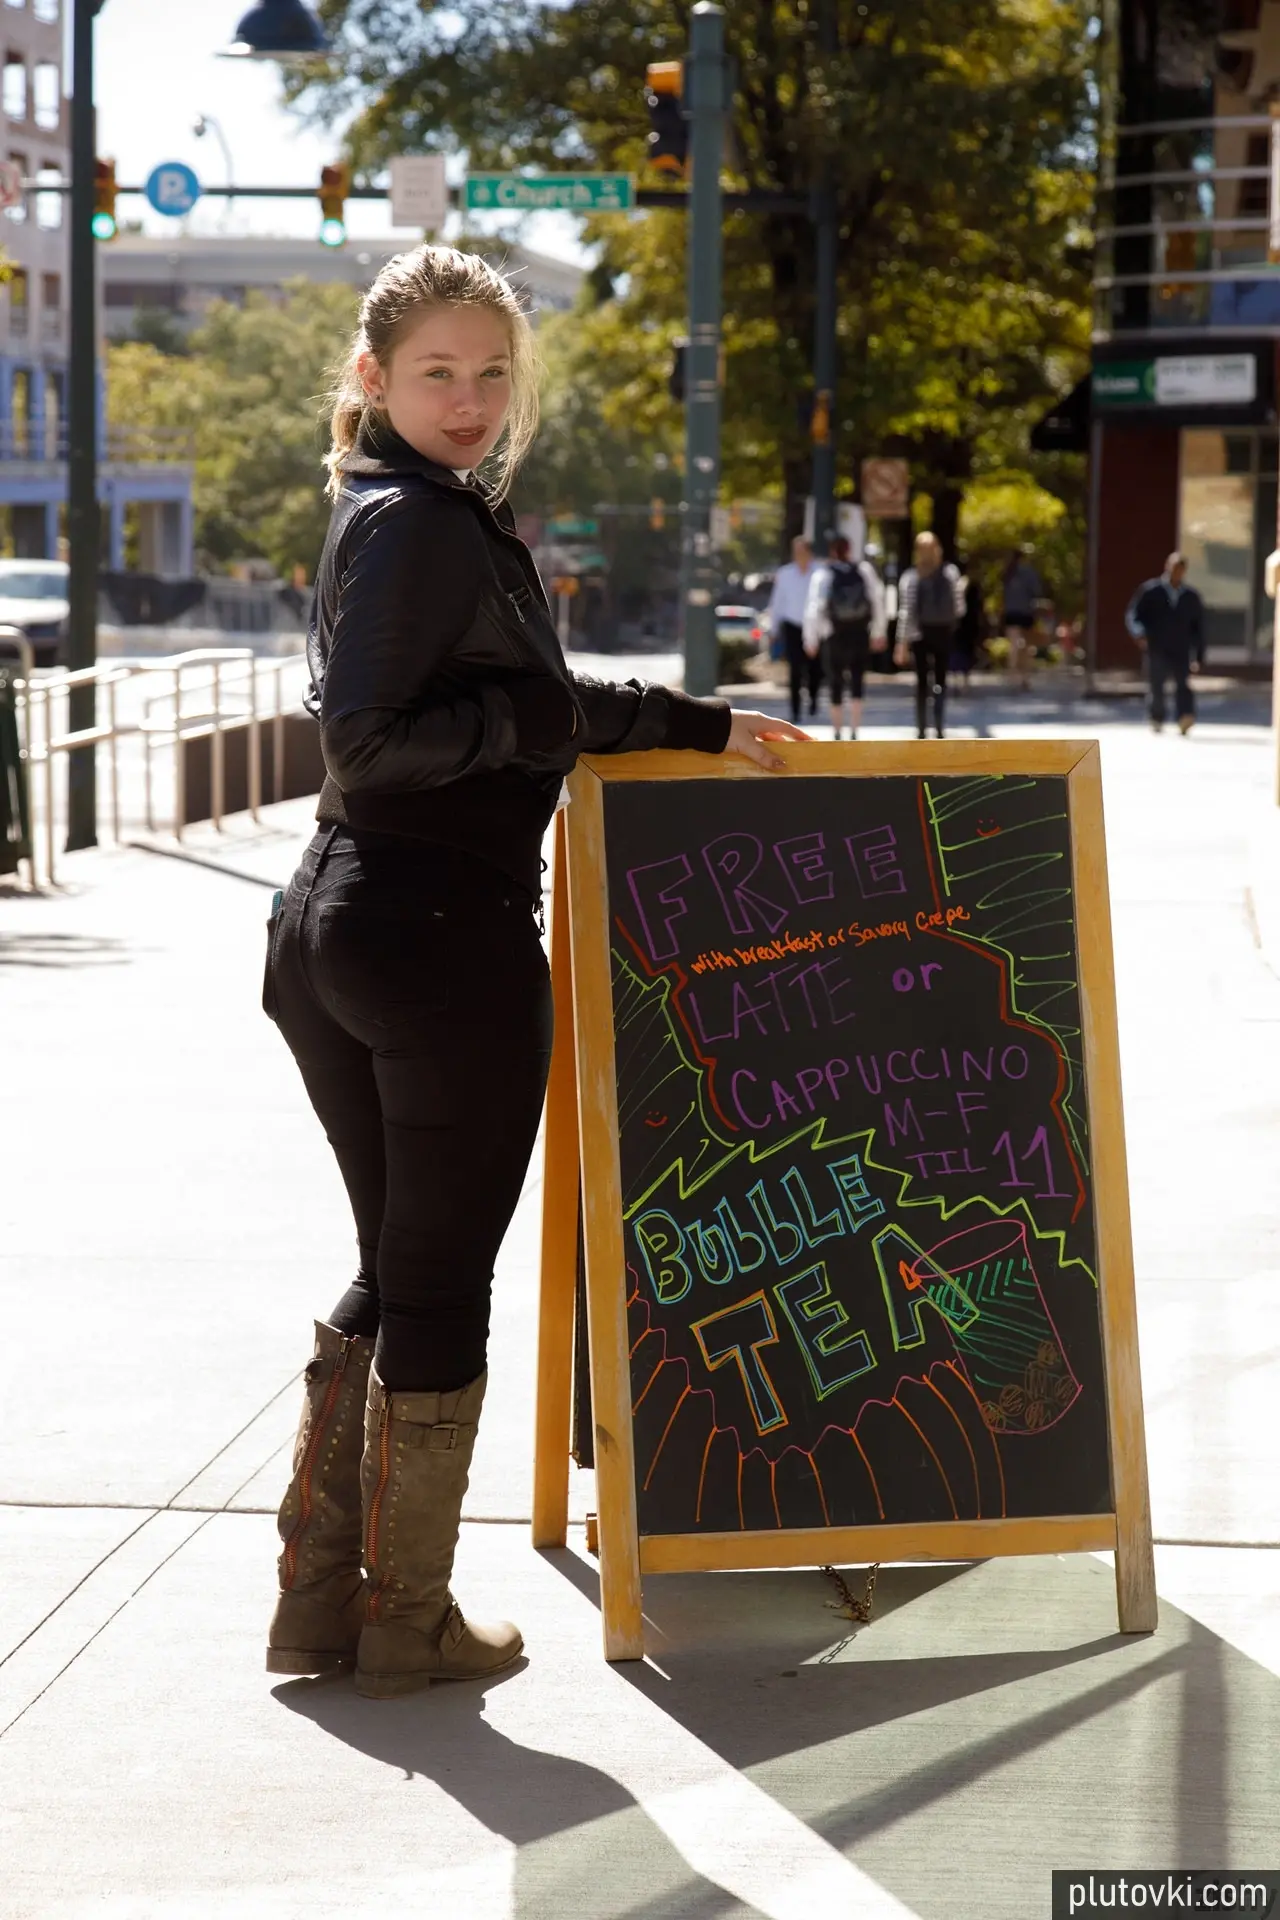 P
Church
FREE
with breakfast or Savory Crepe
LATTE or
CAPPUCCINO
M-F
TIL 11
BUbbLE
TEA
plutovki.com